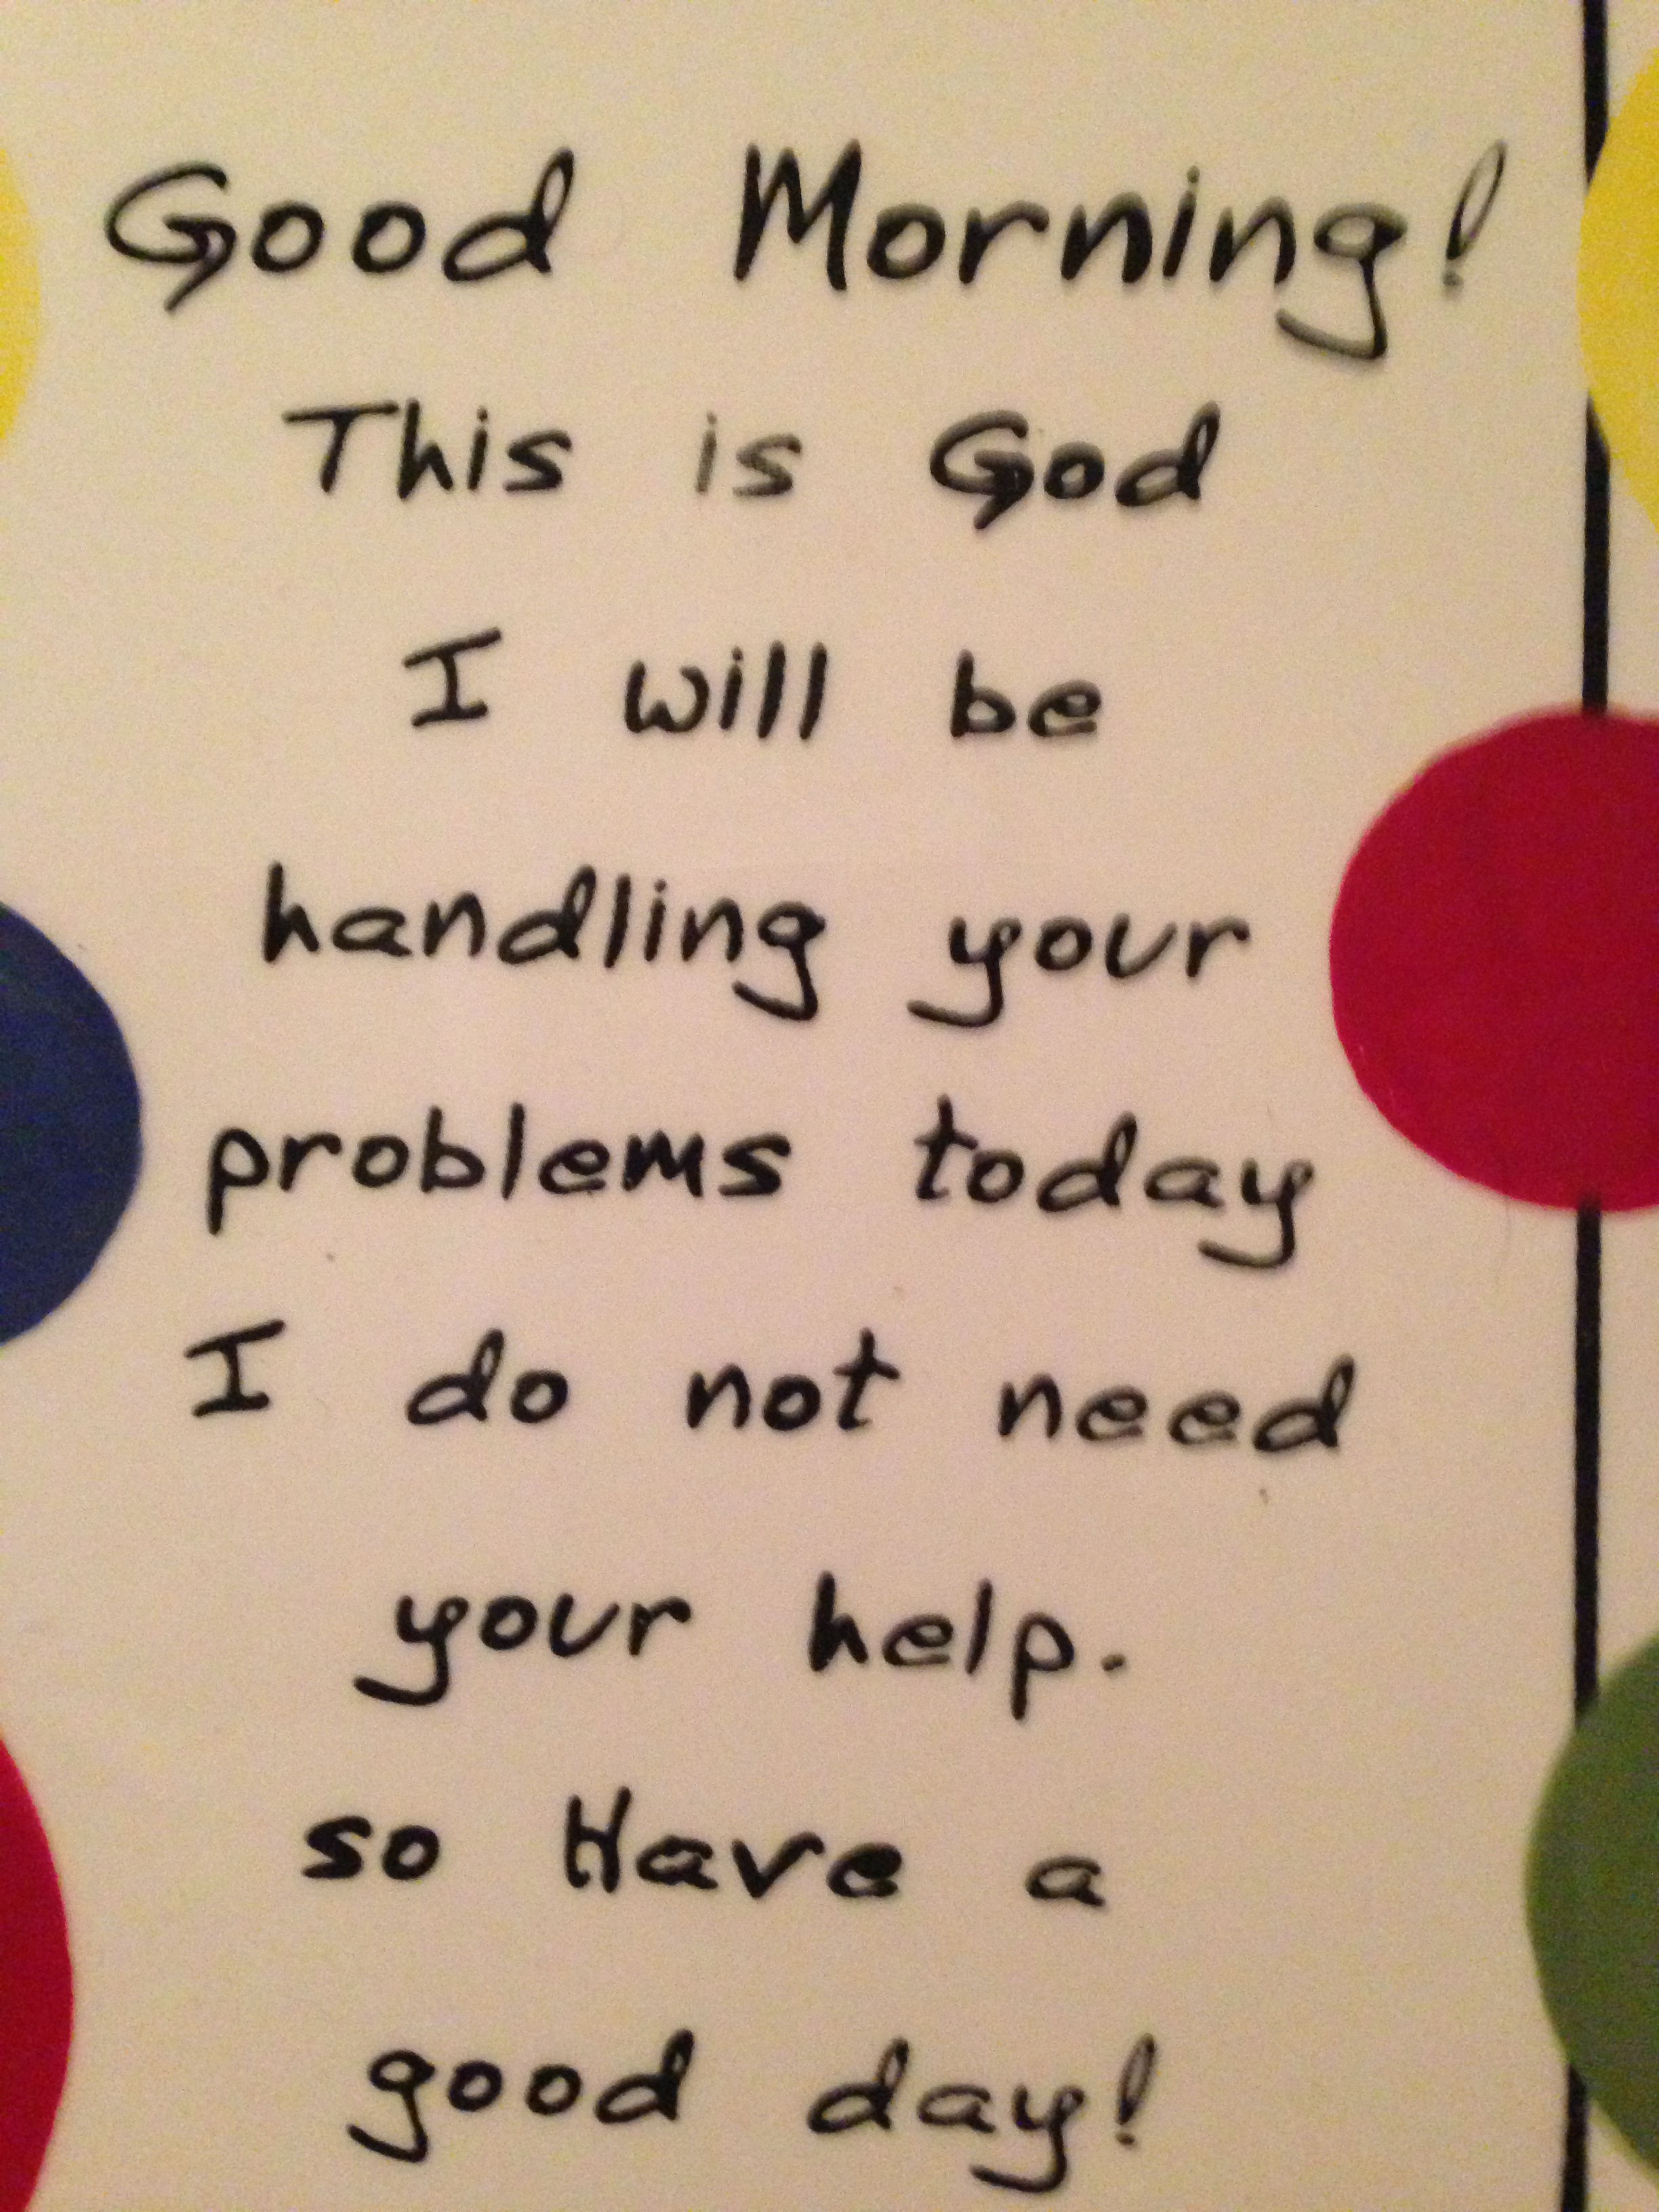 Good Morning!
This is God
I will be
handling your
problems today
I do not need
your help.
so Have a
good day!